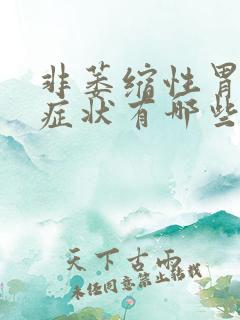 非萎缩性胃
症状有哪些
天下古雨
未经同意禁止转载